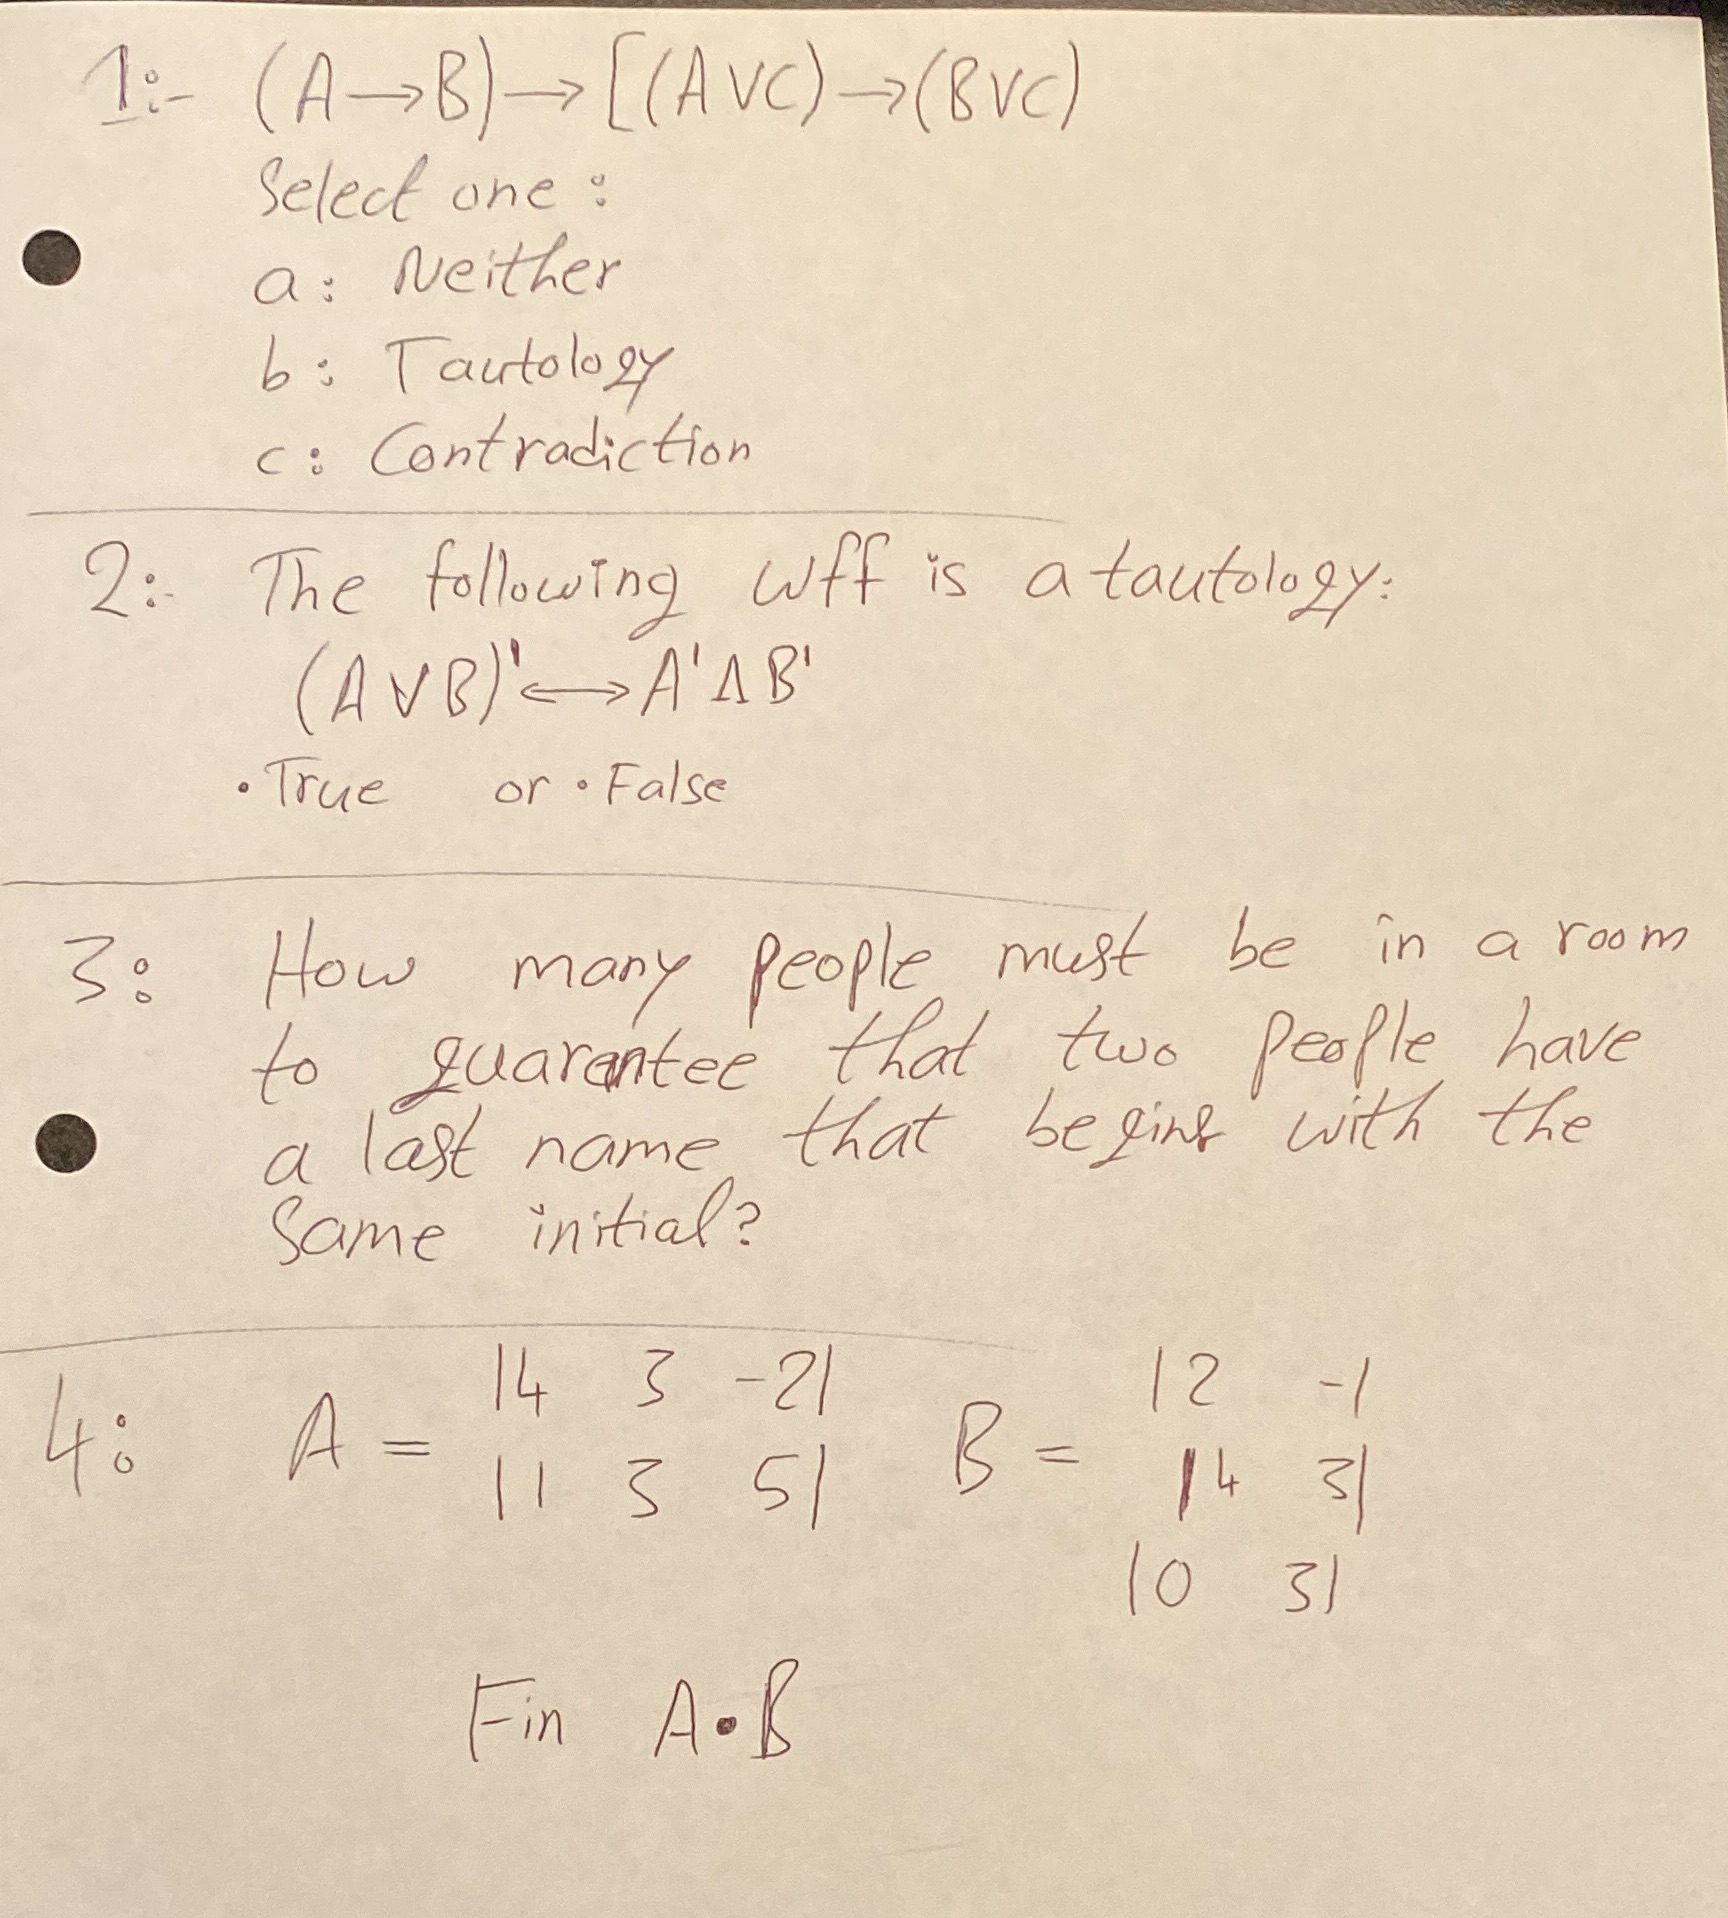 1:- (A→B)→[(A∨C)→(B∨C)
Select one :
a: Neither
b: Tautology
c: Contradiction
2:- The following wff is a tautology:
(A∨B)'↔A'∧B'
• True or • False
3: How many people must be in a room
to guarantee that two people have
a last name that begins with the
Same initial?
4: A = |4 3 -2| B = |2 -1
|1 3 5| |4 3|
|0 3|
Fin A•B